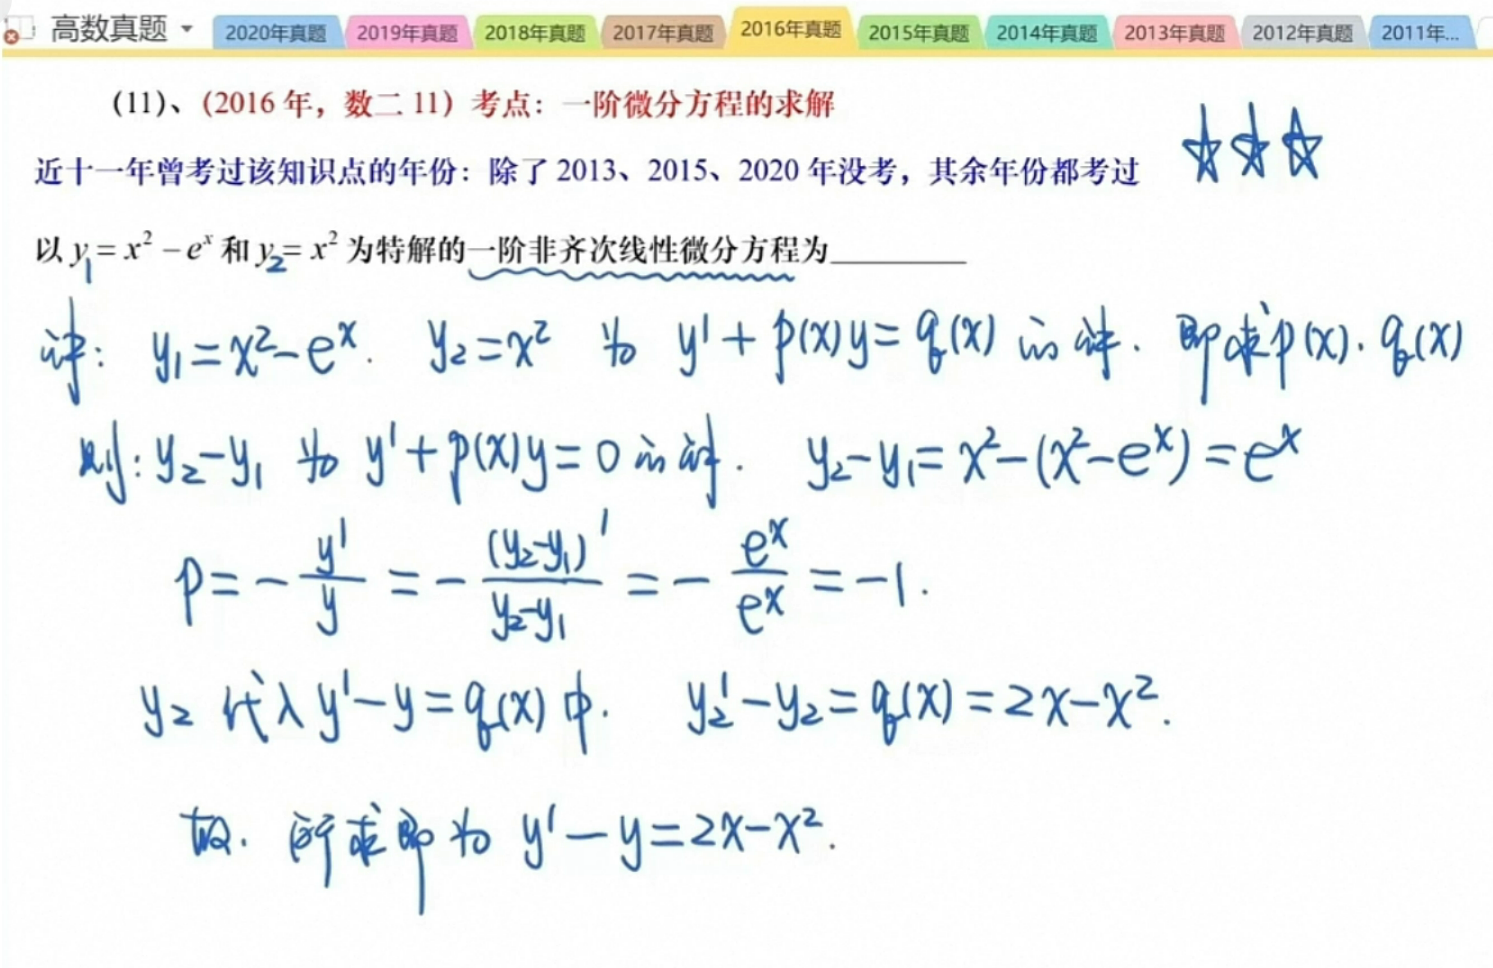 高数真题 2020年真题 2019年真题 2018年真题 2017年真题 2016年真题 2015年真题 2014年真题 2013年真题 2012年真题 2011年...
(11)、(2016 年，数二 11) 考点：一阶微分方程的求解
近十一年曾考过该知识点的年份：除了 2013、2015、2020 年没考，其余年份都考过
以 y₁ = x² − eˣ 和 y₂ = x² 为特解的一阶非齐次线性微分方程为________
详: y₁ = x² − eˣ. y₂ = x² 为 y' + p(x)y = q(x) 的解. 即求 p(x). q(x)
则: y₂ − y₁ 为 y' + p(x)y = 0 的解. y₂ − y₁ = x² − (x² − eˣ) = eˣ
p = − y'/y = − (y₂−y₁)'/(y₂−y₁) = − eˣ/eˣ = −1.
y₂ 代入 y' − y = q(x) 中. y₂' − y₂ = q(x) = 2x − x².
故. 所求即为 y' − y = 2x − x².